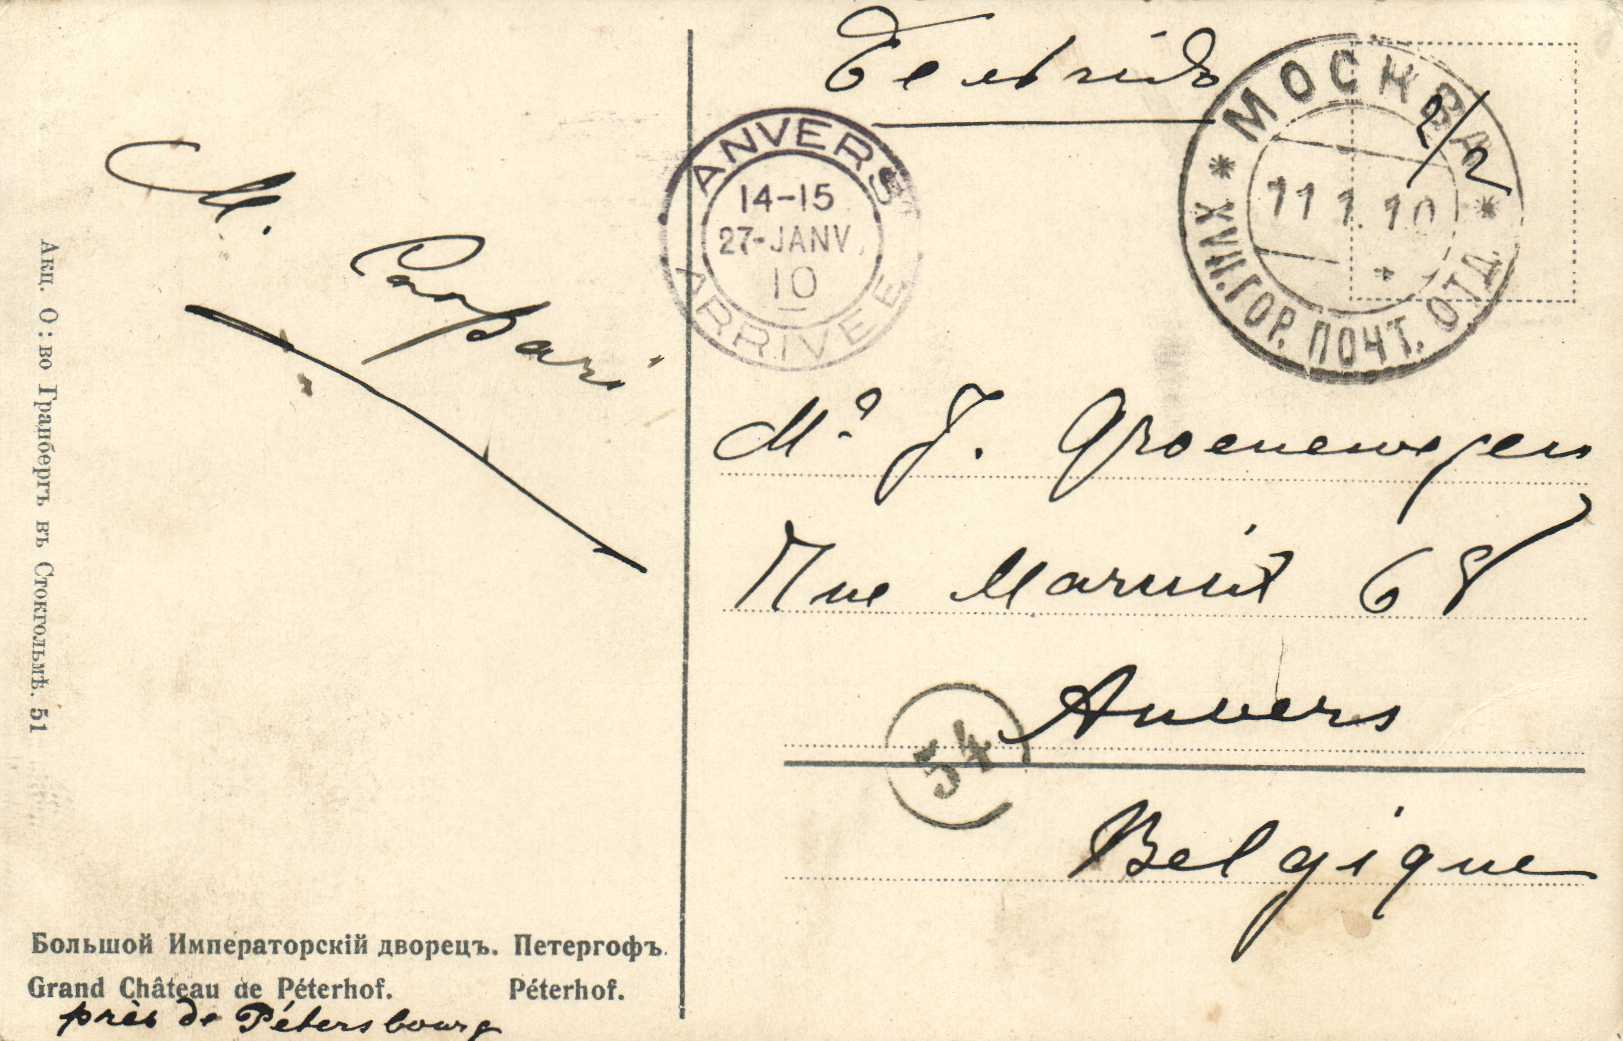 Бельгія
МОСКВА
11 1. 10
XVII. ГОР. ПОЧТ. ОТД.
2/2
ANVERS
14-15
27-JANV.
10
ARRIVEE
M.
Mr J. Groenewegen
Rue Marnix 68
Anvers
54
Belgique
Акц. О:во Гранбергъ въ Стокгольмѣ. 51
Большой Императорскій дворецъ. Петергофъ.
Grand Château de Péterhof. Péterhof.
près de Pétersbourg